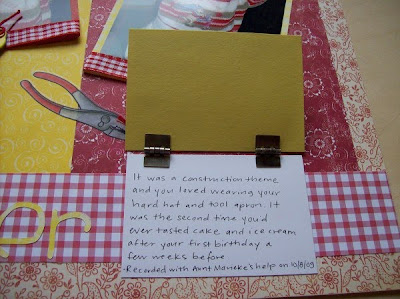 It was a construction theme
and you loved wearing your
hard hat and tool apron. It
was the second time you'd
ever tasted cake and ice cream
after your first birthday a
few weeks before
-Recorded with Aunt Marieke's help on 10/8/09
er